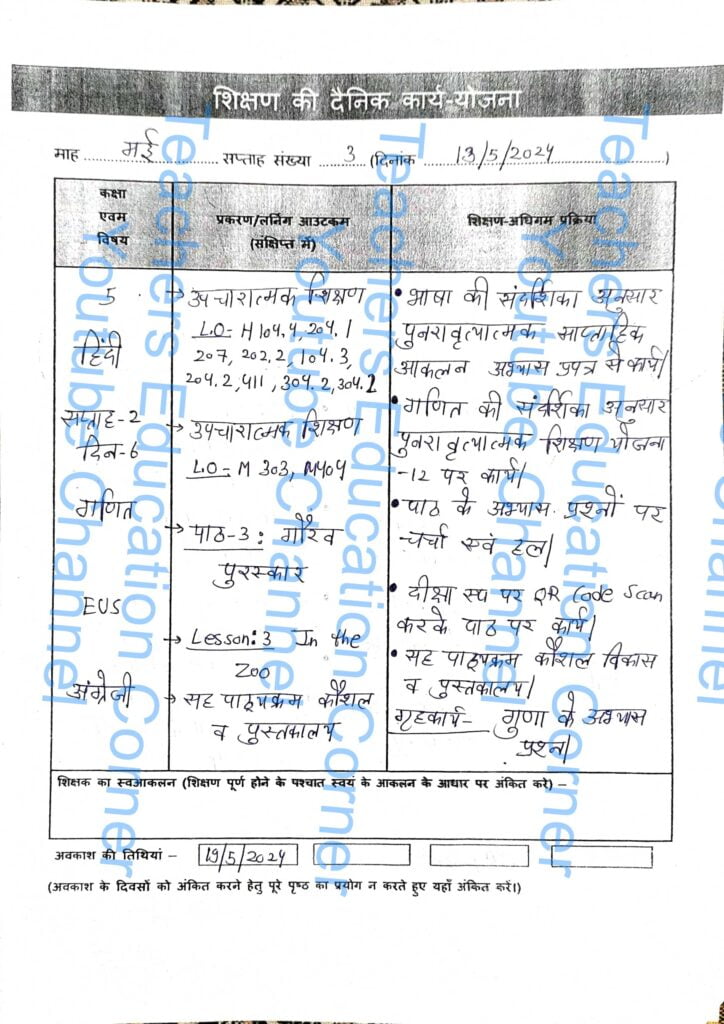 शिक्षण की दैनिक कार्य-योजना
माह मई सप्ताह संख्या 3 (दिनांक 13/5/2024)
कक्षा
एवम
विषय
प्रकरण/लर्निग आउटकम
(संक्षिप्त में)
शिक्षण-अधिगम प्रक्रिया
5
हिंदी
सप्ताह-2
दिन-6
गणित
EUS
अंग्रेजी
→ उपचारात्मक शिक्षण
LO- H104.4, 204.1
207, 202.2, 104.3,
204.2, 411, 304.2, 304.2
→ उपचारात्मक शिक्षण
LO- M 303, M404
→ पाठ-3: गौरव
पुरस्कार
→ Lesson: 3 In the
Zoo
→ सह पाठ्यक्रम कौशल
व पुस्तकालय
• भाषा की संदर्शिका अनुसार
पुनरावृत्यात्मक साप्ताहिक
आकलन अभ्यास प्रपत्र से कार्य।
• गणित की संदर्शिका अनुसार
पुनरावृत्यात्मक शिक्षण योजना
-12 पर कार्य।
• पाठ के अभ्यास प्रश्नों पर
चर्चा एवं हल।
• दीक्षा एप पर QR Code Scan
करके पाठ पर कार्य।
• सह पाठ्यक्रम कौशल विकास
व पुस्तकालय।
गृहकार्य- गुणा के अभ्यास
प्रश्न।
शिक्षक का स्वआकलन (शिक्षण पूर्ण होने के पश्चात स्वयं के आकलन के आधार पर अंकित करे) –
अवकाश की तिथियां – 19/5/2024
(अवकाश के दिवसों को अंकित करने हेतु पूरे पृष्ठ का प्रयोग न करते हुए यहाँ अंकित करें।)
Teachers Education Corner
Youtube Channel
Teachers Education Corner
Youtube Channel
Teachers Education Corner
Youtube Channel